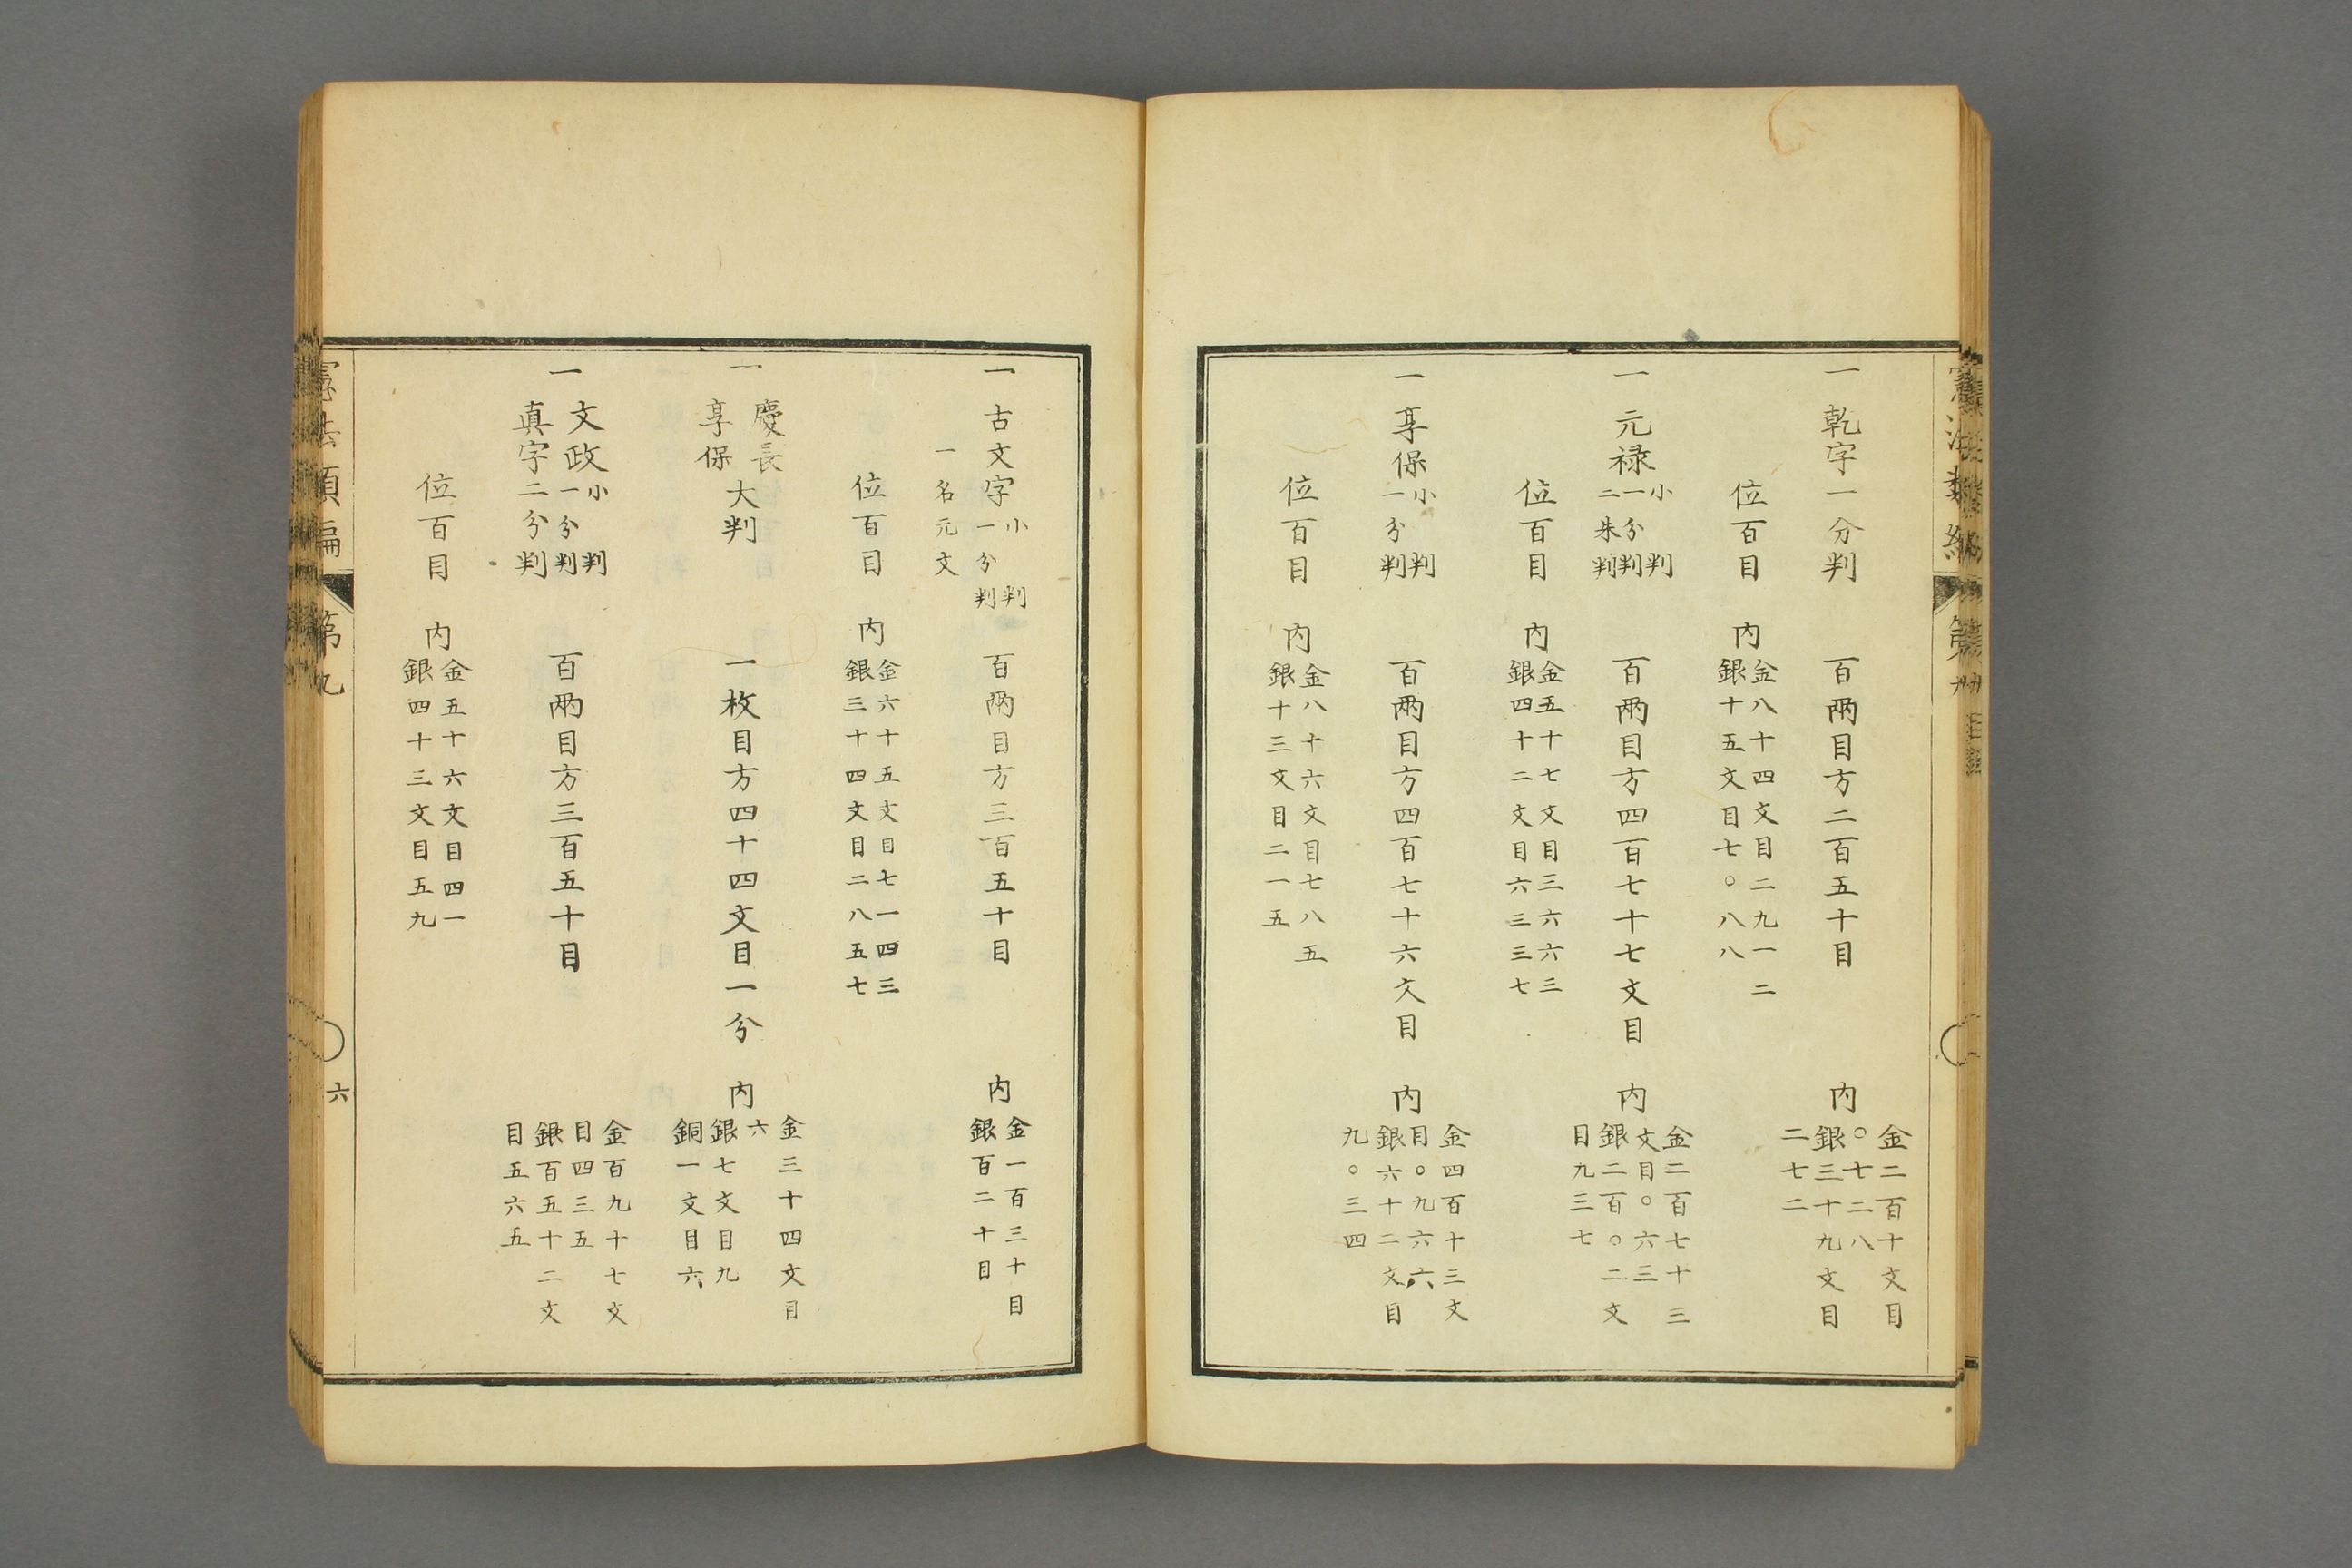 憲法類編
第九
一乾字一分判 百両目方二百五十目 内
金二百十文目
〇七二八
銀三十九文目
二七二
位百目 内
金八十四文目二九一二
銀十五文目七〇八八
一元禄
小判
一分判
二朱判
百両目方四百七十七文目 内
金二百七十三
文目〇六三
銀二百〇二文
目九三七
位百目 内
金五十七文目三六六三
銀四十二文目六三三七
一享保
小判
一分判
百両目方四百七十六文目 内
金四百十三文
目〇九六六
銀六十二文目
九〇三四
位百目 内
金八十六文目七八五
銀十三文目二一五
一古文字
小判
一分判
百両目方三百五十目 内
金一百三十目
銀百二十目
一名元文
位百目 内
金六十五文目七一四三
銀三十四文目二八五七
一
慶長
享保
大判 一枚目方四十四文目一分 内
金三十四文目
六
銀七文目九
銅一文目六
一
文政
真字
小判
一分判
二分判
百両目方三百五十目
金百九十七文
目四三五
銀百五十二文
目五六五
位百目 内
金五十六文目四一
銀四十三文目五九
憲法類編
第九
六